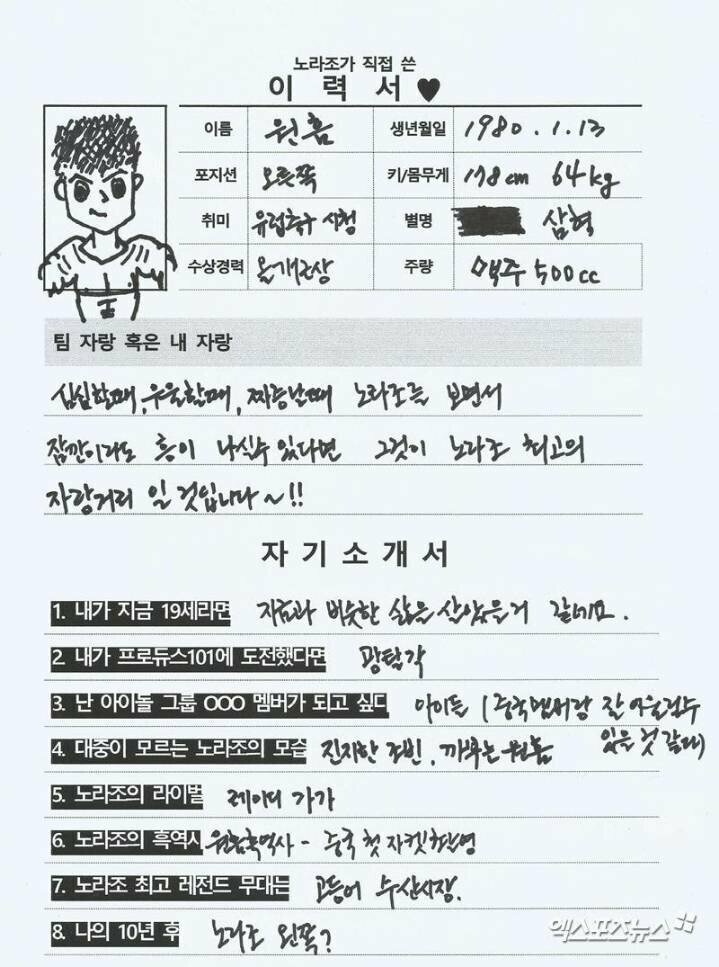 노라조가 직접 쓴
이 력 서 ♥
이름 원흠 생년월일 1980.1.13
포지션 오른쪽 키/몸무게 178cm 64kg
취미 유럽축구 시청 별명 삼혁
수상경력 올개근상 주량 맥주 500cc
팀 자랑 혹은 내 자랑
심심할때, 우울할때, 짜증날때 노라조를 보면서
잠깐이라도 흥이 나실수 있다면 그것이 노라조 최고의
자랑거리 일 것입니다~!!
자 기 소 개 서
1. 내가 지금 19세라면 지금과 비슷한 삶을 살았을거 같네요.
2. 내가 프로듀스101에 도전했다면 광탈각
3. 난 아이돌 그룹 OOO 멤버가 되고 싶다 아이들 (중국멤버랑 잘 어울릴수
있을것 같애)
4. 대중이 모르는 노라조의 모습 진지한 조빈, 까부는 원흠
5. 노라조의 라이벌 레이디 가가
6. 노라조의 흑역사 원흠흑역사 - 중국 첫 자켓촬영
7. 노라조 최고 레전드 무대는 고등어 수산시장.
8. 나의 10년 후 노라조 왼쪽?
엑스포츠뉴스